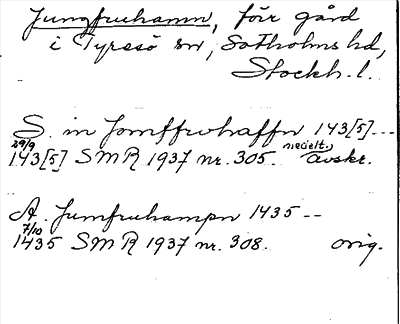 Jungfruhamn, förr gård
i Tyresö sn, Sotholms hd,
Stockh. l.
S. in Jomffrwhaffn 143[5] ---
29/9 medelt.
143[5] SMR 1937 nr. 305. avskr.
A. Jumfruhampn 1435 --
7/10
1435 SMR 1937 nr. 308. orig.